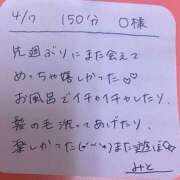 4/17 150分 O様
1週ぶりにまた会えて
めっちゃ嬉しかった♡♡
お風呂でイチャイチャしたり、
髪の毛洗ってあげたり、
楽しかった(˶ˊᵕˋ˶)また遊ぼ♡
みと